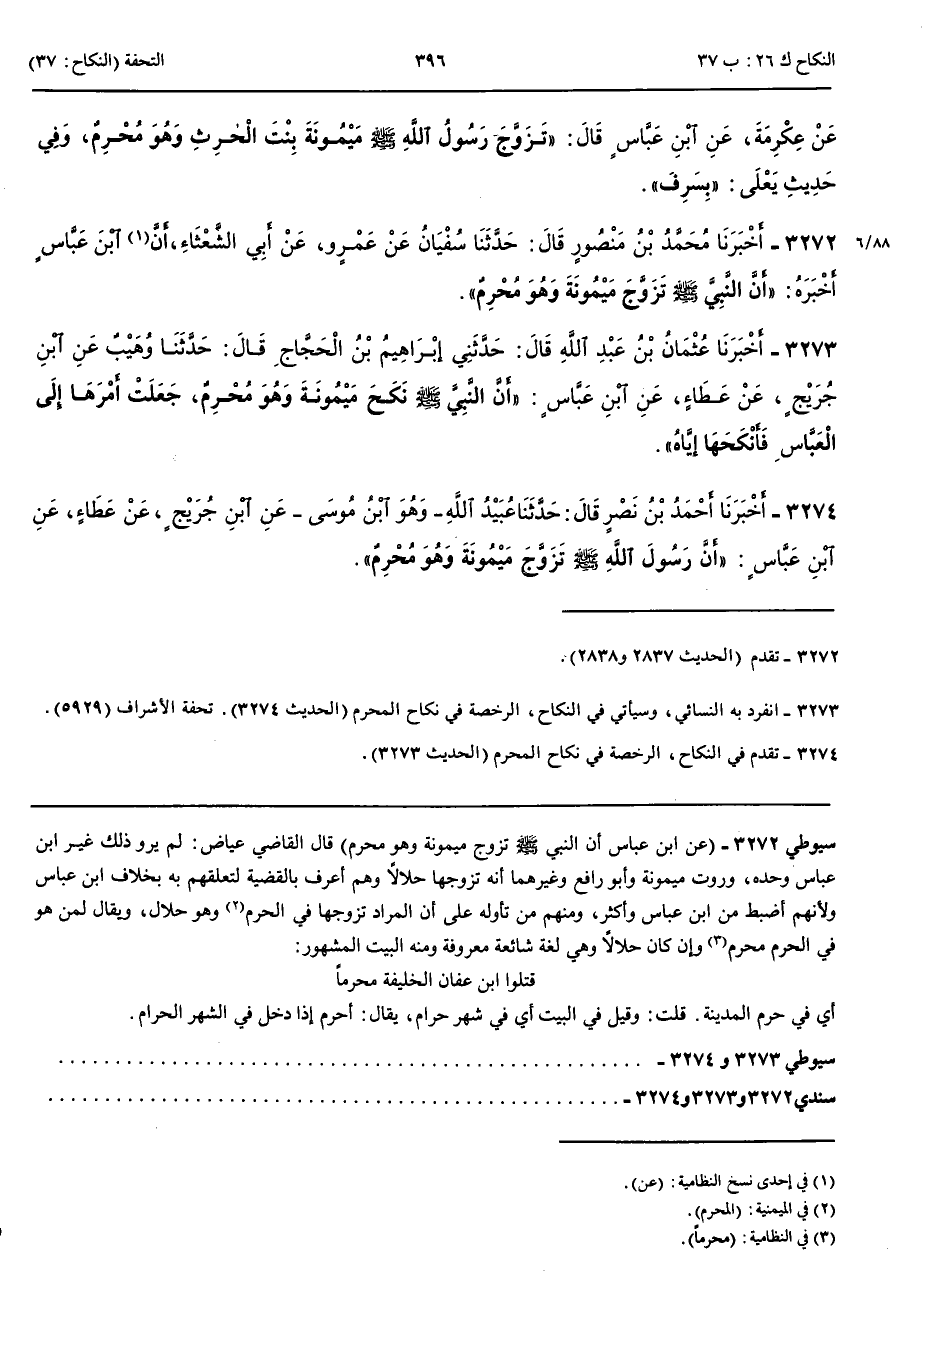 النكاح ك ٢٦: ب ٣٧ ٣٩٦ التحفة (النكاح: ٣٧)
عَنْ عِكْرِمَةَ، عَنِ ٱبْنِ عَبَّاسٍ قَالَ: «تَزَوَّجَ رَسُولُ ٱللَّهِ ﷺ مَيْمُونَةَ بِنْتَ الْحٰرِثِ وَهُوَ مُحْرِمٌ، وَفِي
حَدِيثِ يَعْلَى: «بِسَرِفَ».
٦/٨٨ ٣٢٧٢ - أَخْبَرَنَا مُحَمَّدُ بْنُ مَنْصُورٍ قَالَ: حَدَّثَنَا سُفْيَانُ عَنْ عَمْرٍو، عَنْ أَبِي الشَّعْثَاءِ،أَنَّ(١) ٱبْنَ عَبَّاسٍ
أَخْبَرَهُ: «أَنَّ النَّبِيَّ ﷺ تَزَوَّجَ مَيْمُونَةَ وَهُوَ مُحْرِمٌ».
٣٢٧٣ - أَخْبَرَنَا عُثْمَانُ بْنُ عَبْدِ ٱللَّهِ قَالَ: حَدَّثَنِي إِبْرَاهِيمُ بْنُ الْحَجَّاجِ قَالَ: حَدَّثَنَا وُهَيْبٌ عَنِ ٱبْنِ
جُرَيْجٍ، عَنْ عَطَاءٍ، عَنِ ٱبْنِ عَبَّاسٍ: «أَنَّ النَّبِيَّ ﷺ نَكَحَ مَيْمُونَةَ وَهُوَ مُحْرِمٌ، جَعَلَتْ أَمْرَهَا إِلَى
الْعَبَّاسِ فَأَنْكَحَهَا إِيَّاهُ».
٣٢٧٤ - أَخْبَرَنَا أَحْمَدُ بْنُ نَصْرٍ قَالَ: حَدَّثَنَا عُبَيْدُ ٱللَّهِ - وَهُوَ ٱبْنُ مُوسَى - عَنِ ٱبْنِ جُرَيْجٍ، عَنْ عَطَاءٍ، عَنِ
ٱبْنِ عَبَّاسٍ: «أَنَّ رَسُولَ ٱللَّهِ ﷺ تَزَوَّجَ مَيْمُونَةَ وَهُوَ مُحْرِمٌ».
٣٢٧٢ - تقدم (الحديث ٢٨٣٧ و٢٨٣٨).
٣٢٧٣ - انفرد به النسائي، وسيأتي في النكاح، الرخصة في نكاح المحرم (الحديث ٣٢٧٤). تحفة الأشراف (٥٩٢٩).
٣٢٧٤ - تقدم في النكاح، الرخصة في نكاح المحرم (الحديث ٣٢٧٣).
سيوطي ٣٢٧٢ - (عن ابن عباس أن النبي ﷺ تزوج ميمونة وهو محرم) قال القاضي عياض: لم يرو ذلك غير ابن
عباس وحده، وروت ميمونة وأبو رافع وغيرهما أنه تزوجها حلالاً وهم أعرف بالقضية لتعلقهم به بخلاف ابن عباس
ولأنهم أضبط من ابن عباس وأكثر، ومنهم من تأوله على أن المراد تزوجها في الحرم(٢) وهو حلال، ويقال لمن هو
في الحرم محرم(٣) وإن كان حلالاً وهي لغة شائعة معروفة ومنه البيت المشهور:
قتلوا ابن عفان الخليفة محرماً
أي في حرم المدينة. قلت: وقيل في البيت أي في شهر حرام، يقال: أحرم إذا دخل في الشهر الحرام.
سيوطي ٣٢٧٣ و ٣٢٧٤ - . . . . . . . . . . . . . . . . . . . . . . . . . . . . . . . . . . . . . . . . . . . . . . . . . . .
سندي٣٢٧٢و٣٢٧٣و٣٢٧٤ - . . . . . . . . . . . . . . . . . . . . . . . . . . . . . . . . . . . . . . . . . . . . . . . . . . .
(١) في إحدى نسخ النظامية: (عن).
(٢) في الميمنية: (المحرم).
(٣) في النظامية: (محرماً).